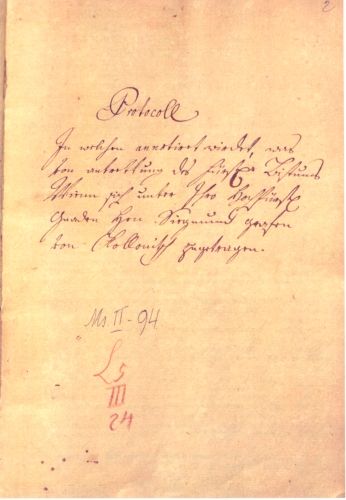 2
Protocoll
In welchen annotiert wirdet, was
von antrettung des Bistums
Wienn sich unter Ihro Hochfürstl
Gnaden Hrn Siegmund grafen
von Kollonisch zugetragen.
Ms II-94
L5
III
24